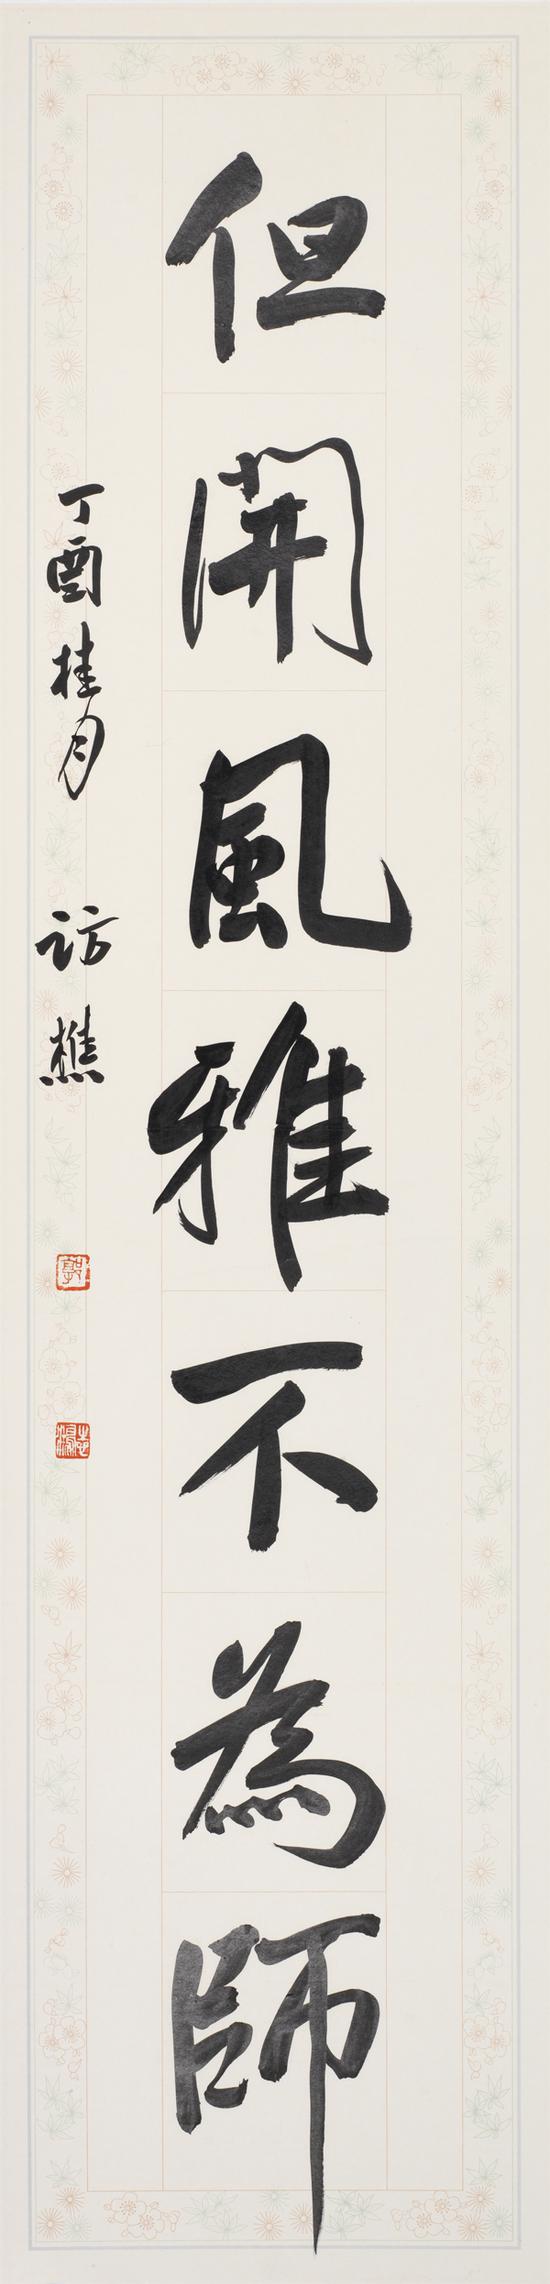 但開風雅不為師
丁酉桂月 訪樵